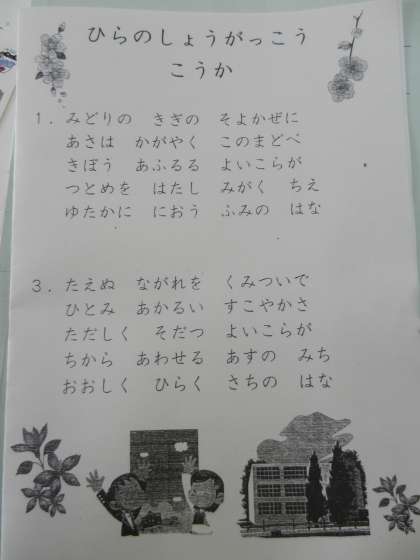 ひらのしょうがっこう
こうか
1．みどりの　きぎの　そよかぜに
あさは　かがやく　このまどべ
きぼう　あふるる　よいこらが
つとめを　はたし　みがく　ちえ
ゆたかに　におう　ふみの　はな
3．たえぬ　ながれを　くみついで
ひとみ　あかるい　すこやかさ
ただしく　そだつ　よいこらが
ちから　あわせる　あすの　みち
おおしく　ひらく　さちの　はな